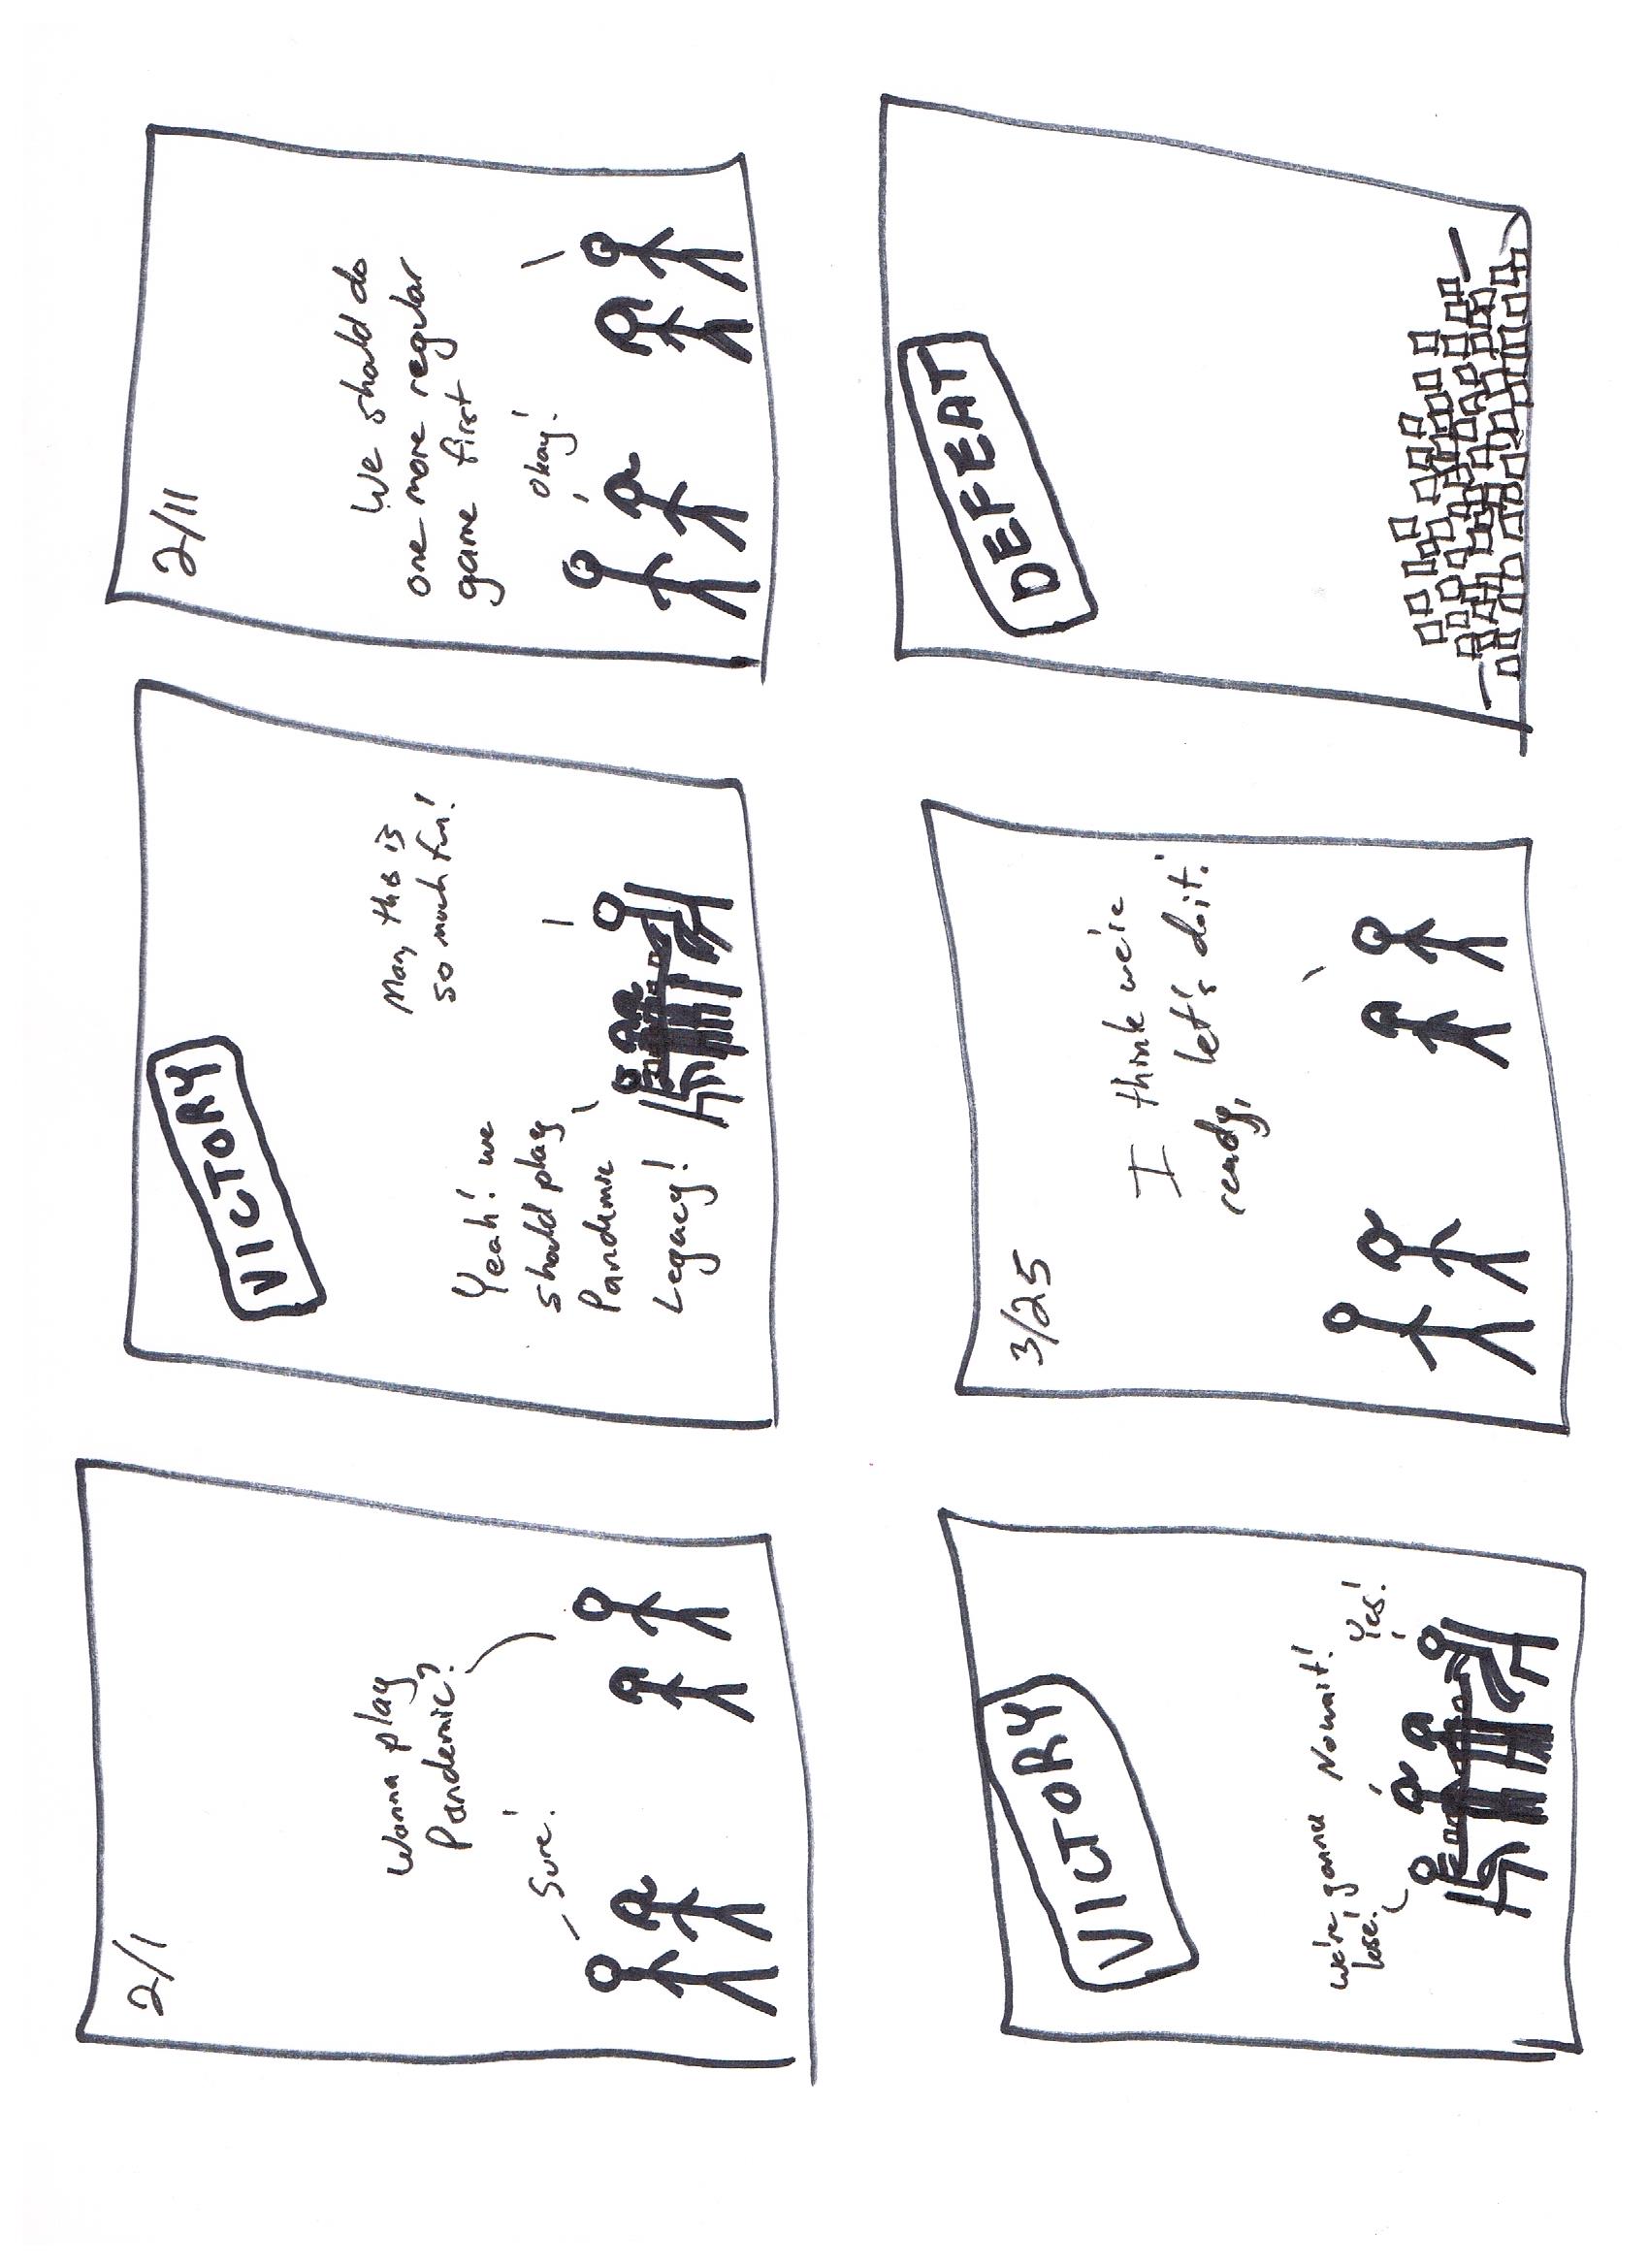 2/1
Wanna play
Pandemic?
Sure!
VICTORY
Man, this is
so much fun!
Yeah! we
should play
Pandemic
Legacy!
2/11
We should do
one more regular
game first
okay!
VICTORY
We're gonna
lose!
No wait!
Yes!
3/25
I think we're
ready, let's do it!
DEFEAT